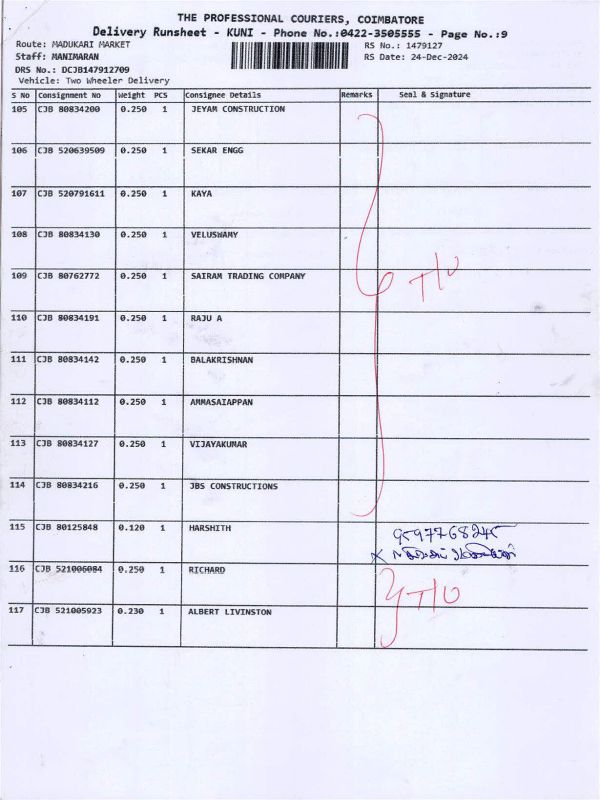 THE PROFESSIONAL COURIERS, COIMBATORE
Delivery Runsheet - KUNI - Phone No.:0422-3505555 - Page No.:9
Route: MADUKARI MARKET RS No.: 1479127
Staff: MANIMARAN RS Date: 24-Dec-2024
DRS No.: DCJB147912709
Vehicle: Two Wheeler Delivery
S No Consignment No Weight PCS Consignee Details Remarks Seal & Signature
105 CJB 80834200 0.250 1 JEYAM CONSTRUCTION
106 CJB 520639509 0.250 1 SEKAR ENGG
107 CJB 520791611 0.250 1 KAYA
108 CJB 80834130 0.250 1 VELUSWAMY
109 CJB 80762772 0.250 1 SAIRAM TRADING COMPANY T/O
110 CJB 80834191 0.250 1 RAJU A
111 CJB 80834142 0.250 1 BALAKRISHNAN
112 CJB 80834112 0.250 1 AMMASAIAPPAN
113 CJB 80834127 0.250 1 VIJAYAKUMAR
114 CJB 80834216 0.250 1 JBS CONSTRUCTIONS
115 CJB 80125848 0.120 1 HARSHITH
116 CJB 521006084 0.250 1 RICHARD T/O
117 CJB 521005923 0.230 1 ALBERT LIVINSTON